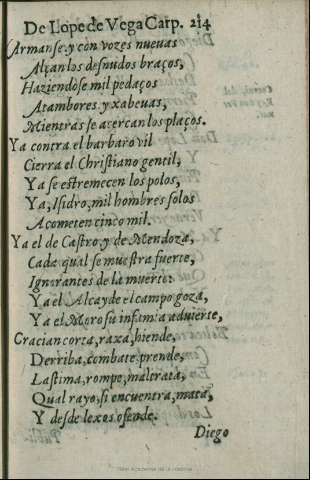 De Lope de Vega Carp. 214
Armanse y con vozes nueuas
Alçan los desnudos braços,
Haziendose mil pedaços
Atambores, y xabeuas,
Mientras se acercan los plaços.
Ya contra el barbaro vil
Cierra el Christiano gentil,
Ya se estremecen los polos,
Ya, Isidro, mil hombres solos
Acometen cinco mil.
Ya el de Castro, y de Mendoza,
Cada qual se muestra fuerte,
Ignorantes de la muerte:
Ya el Alcayde el campo goza,
Ya el Moro su infamia aduierte,
Gracian corta, raxa, hiende,
Derriba, combate, prende,
Lastima, rompe, malrata,
Qual rayo, si encuentra, mata,
Y desde lexos ofende.
Diego